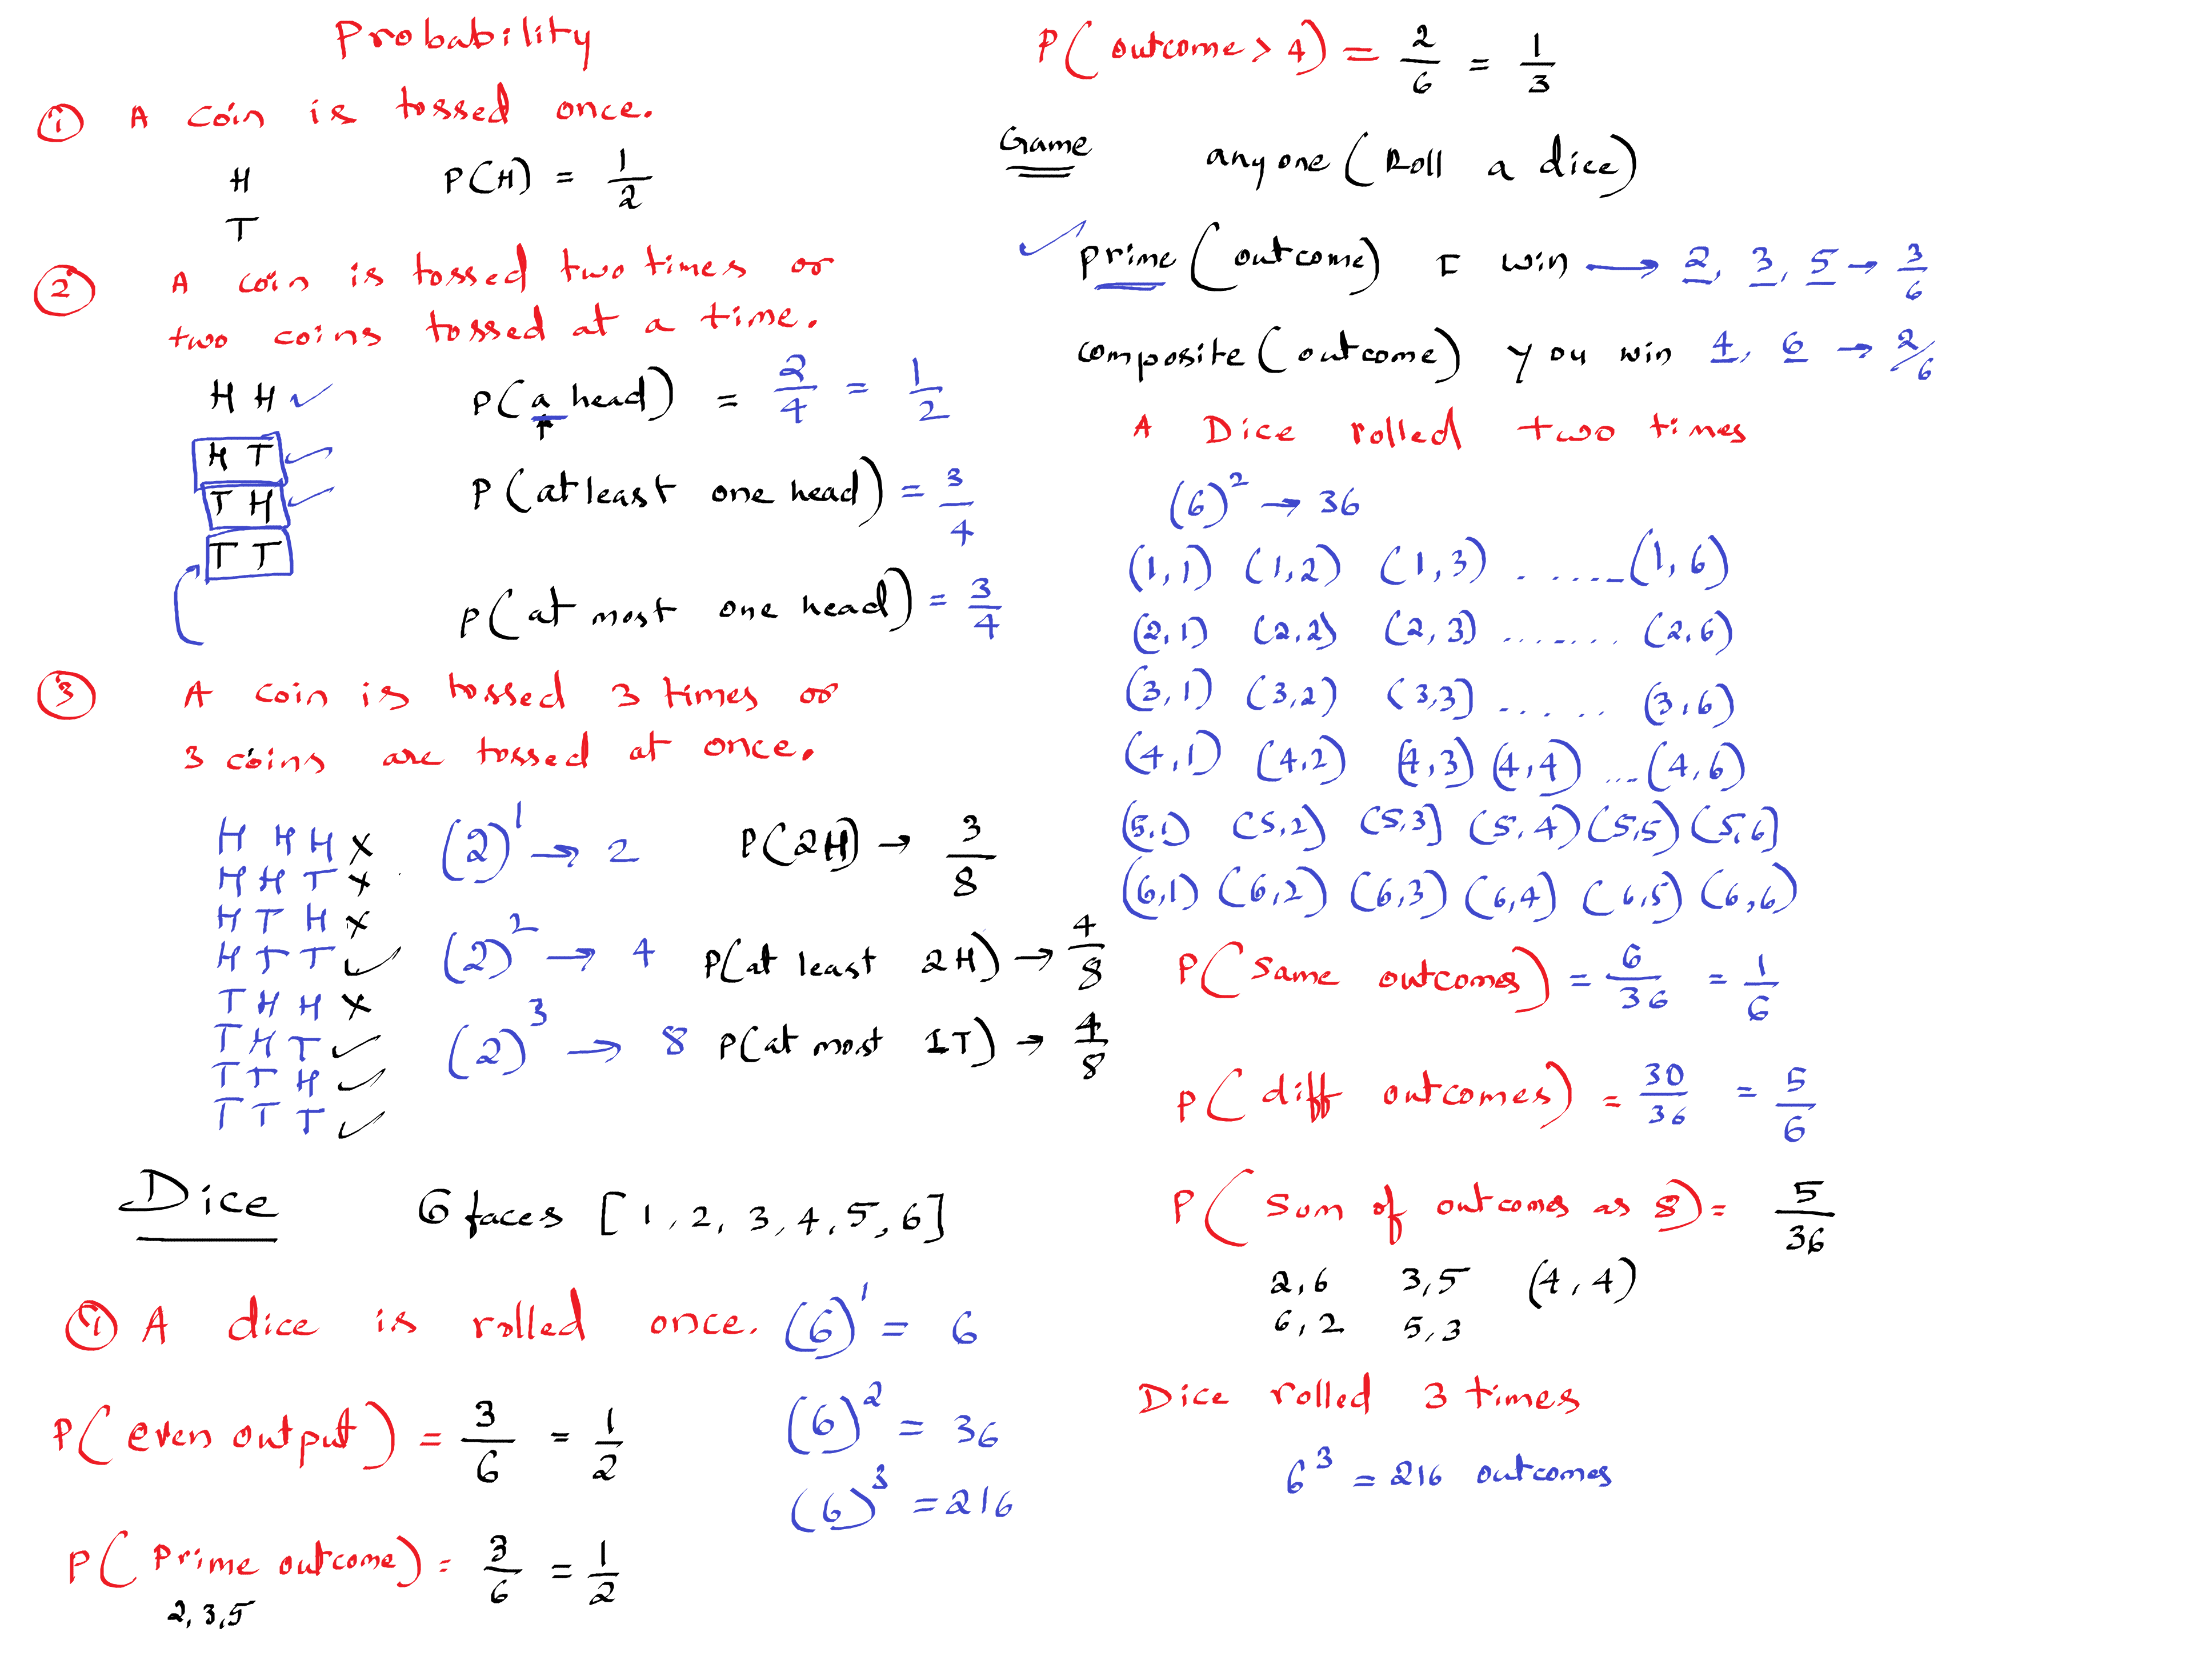 Probability
① A coin is tossed once.
H P(H) = 1/2
T
② A coin is tossed two times or
two coins tossed at a time.
H H ✓ P(a head) = 2/4 = 1/2
H T ✓
T H ✓ P(at least one head) = 3/4
T T
P(at most one head) = 3/4
③ A coin is tossed 3 times or
3 coins are tossed at once.
H H H × (2)^1 → 2 P(2H) → 3/8
H H T ×
H T H ×
H T T ✓ (2)^2 → 4 P(at least 2H) → 4/8
T H H ×
T H T ✓ (2)^3 → 8 P(at most 1T) → 4/8
T T H ✓
T T T ✓
Dice 6 faces [1, 2, 3, 4, 5, 6]
① A dice is rolled once. (6)^1 = 6
P(even output) = 3/6 = 1/2 (6)^2 = 36
(6)^3 = 216
P(Prime outcome) = 3/6 = 1/2
2, 3, 5
P(outcome > 4) = 2/6 = 1/3
Game anyone (Roll a dice)
✓ prime (outcome) I win → 2, 3, 5 → 3/6
composite (outcome) you win 4, 6 → 2/6
A Dice rolled two times
(6)^2 → 36
(1,1) (1,2) (1,3) ...... (1,6)
(2,1) (2,2) (2,3) ....... (2,6)
(3,1) (3,2) (3,3] ..... (3,6)
(4,1) (4,2) (4,3) (4,4) ... (4,6)
(5,1) (5,2) (5,3] (5,4) (5,5) (5,6]
(6,1) (6,2) (6,3) (6,4) (6,5) (6,6)
P(same outcomes) = 6/36 = 1/6
P(diff outcomes) = 30/36 = 5/6
P(Sum of outcomes as 8) = 5/36
2,6 3,5 (4,4)
6,2 5,3
Dice rolled 3 times
6^3 = 216 outcomes